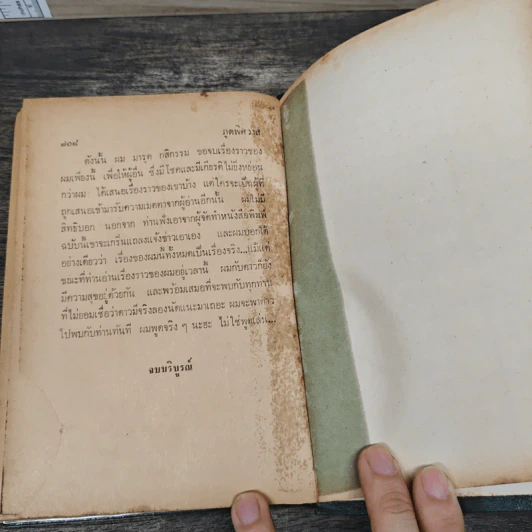 ๘๐๘
ภูตพิศวาส
ดังนั้น ผม มารุต กสิกรรม ขอจบเรื่องราวของ
ผมเพียงนี้ เพื่อให้ผู้อื่น ซึ่งมีโชคและมีเกียรติไม่ยิ่งหย่อน
กว่าผม ได้เสนอเรื่องราวของเขาบ้าง แต่ใครจะเป็นผู้ที่
ถูกเสนอเข้ามารับความเมตตาจากผู้อ่านอีกนั้น ผมไม่มี
สิทธิบอก นอกจาก ท่านฟังเอาจากผู้จัดทำหนังสือพิมพ์
ฉบับนั้นเขาจะเกริ่นแถลงแจ้งข่าวเอาเอง และผมบอกได้
อย่างเดียวว่า เรื่องของผมนี้ทั้งหมดเป็นเรื่องจริง...แม้แต่
ขณะที่ท่านอ่านเรื่องราวของผมอยู่เวลานี้ ผมกับดาวก็ยัง
มีความสุขอยู่ด้วยกัน และพร้อมเสมอที่จะพบกับทุกท่าน
ที่ไม่ยอมเชื่อว่าดาวมีจริงลองนัดแนะมาเถอะ ผมจะพาดาว
ไปพบกับท่านทันที ผมพูดจริง ๆ นะฮะ ไม่ใช่พูดเล่น...
จบบริบูรณ์